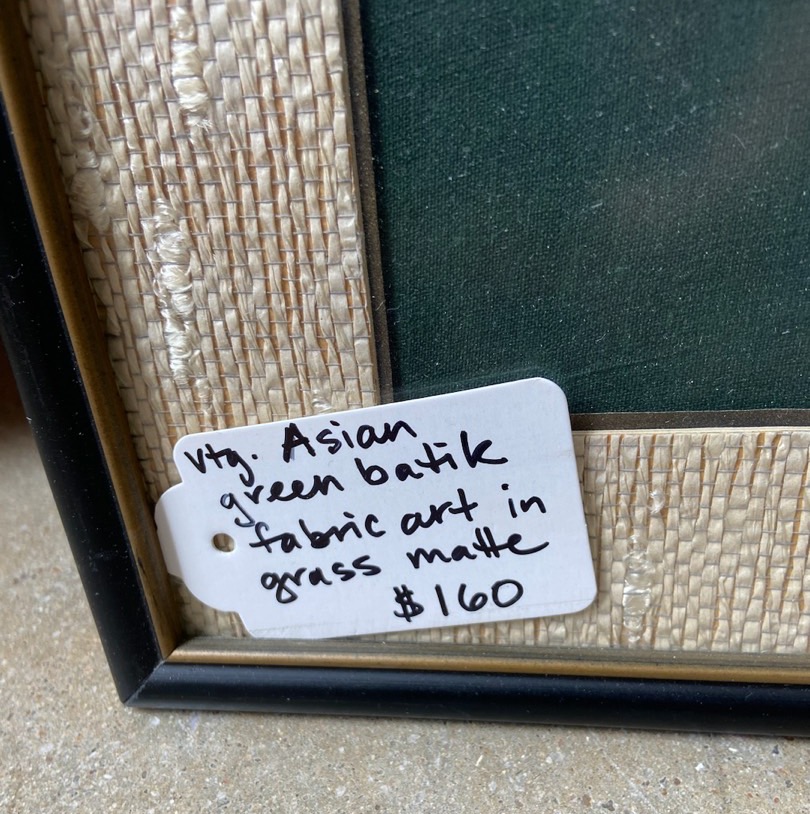 vtg. Asian
green batik
fabric art in
grass matte
$160